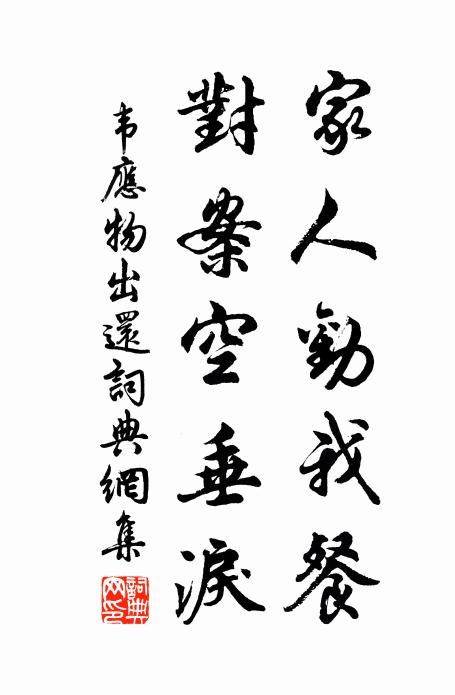 家人勸我餐
對案空垂淚
韦應物出還詞典網集
詞典網印